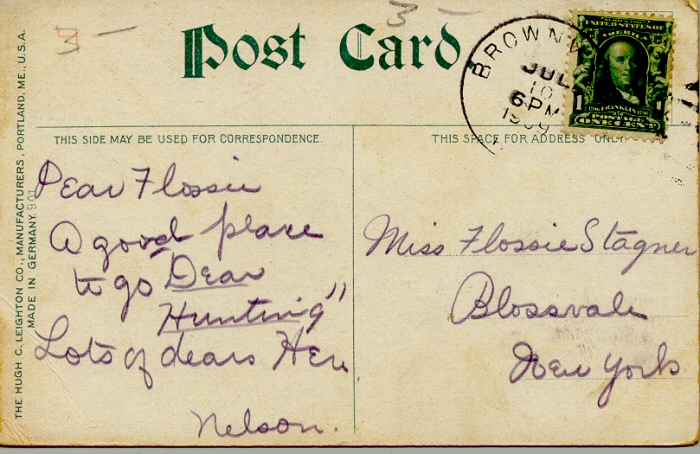 3 -
3 -
Post Card
BROWNV
JUL
10
6 PM
1909
UNITED STATES OF AMERICA
FRANKLIN
1 POSTAGE 1
ONE CENT
THIS SIDE MAY BE USED FOR CORRESPONDENCE.
THIS SPACE FOR ADDRESS ONLY
THE HUGH C. LEIGHTON CO., MANUFACTURERS, PORTLAND, ME., U.S.A.
MADE IN GERMANY. 901
Dear Flossie
A good place
to go "Dear
Hunting"
Lots of dears Here.
Nelson.
Miss Flossie Stagner
Blossvale
New York